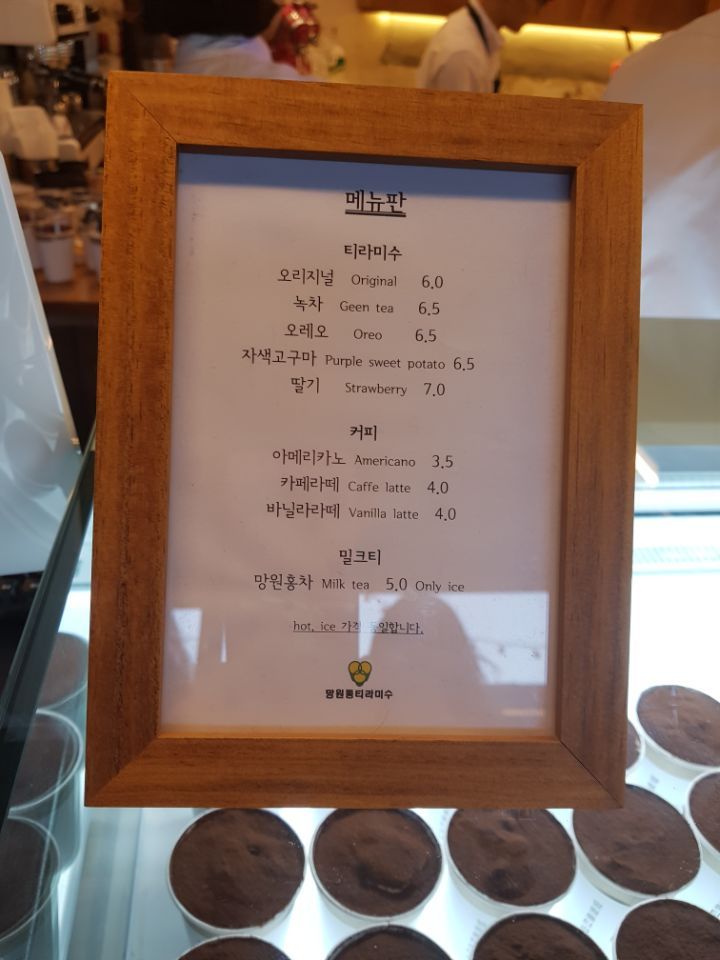 메뉴판
티라미수
오리지널 Original 6.0
녹차 Geen tea 6.5
오레오 Oreo 6.5
자색고구마 Purple sweet potato 6.5
딸기 Strawberry 7.0
커피
아메리카노 Americano 3.5
카페라떼 Caffe latte 4.0
바닐라라떼 Vanilla latte 4.0
밀크티
망원홍차 Milk tea 5.0 Only ice
hot, ice 가격 동일합니다.
망원통티라미수